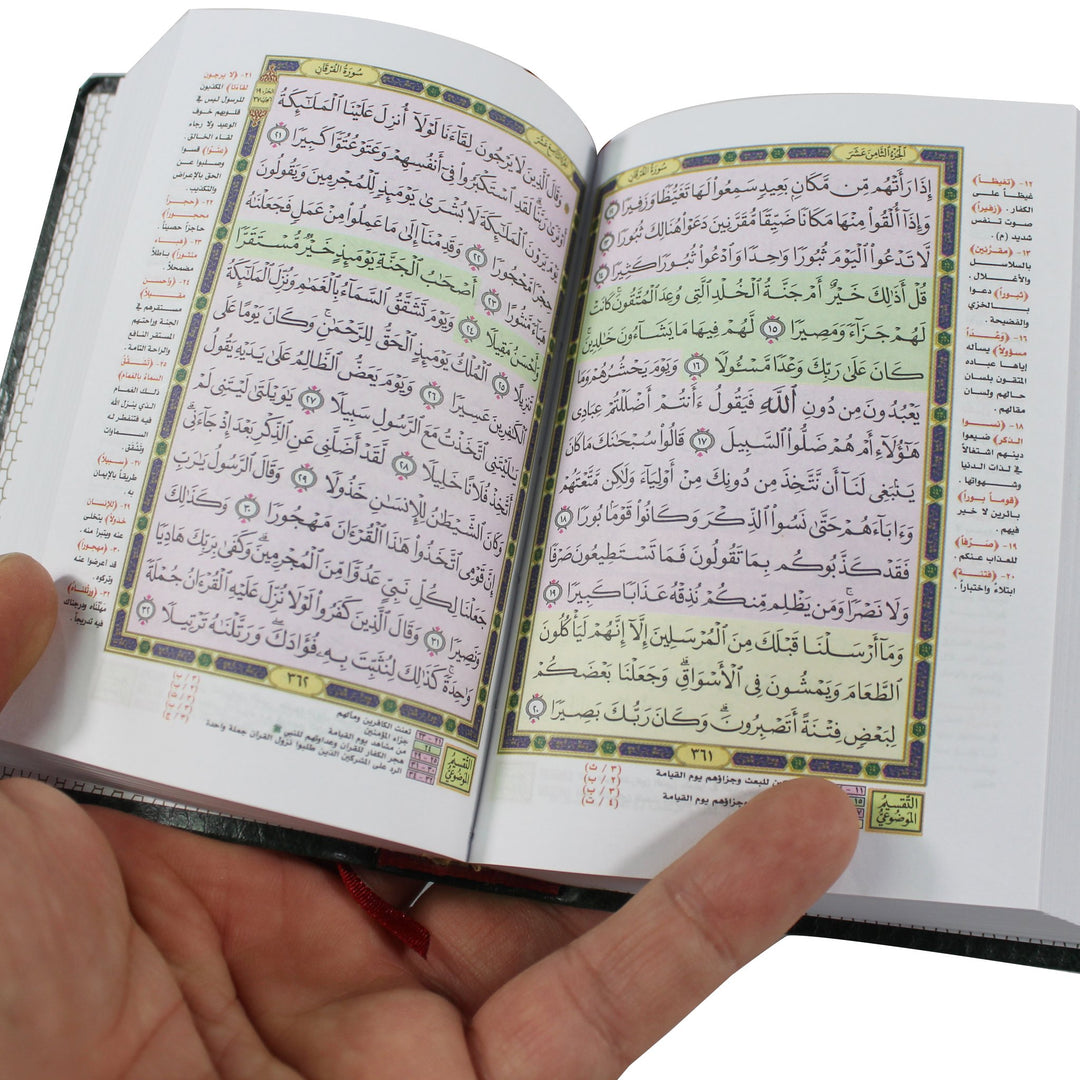 الجزء الثامن عشر
سورة الفرقان
إِذَا رَأَتْهُم مِّن مَّكَانٍ بَعِيدٍ سَمِعُوا۟ لَهَا تَغَيُّظًا وَزَفِيرًا ١٢
وَإِذَآ أُلْقُوا۟ مِنْهَا مَكَانًا ضَيِّقًا مُّقَرَّنِينَ دَعَوْا۟ هُنَالِكَ ثُبُورًا ١٣
لَّا تَدْعُوا۟ ٱلْيَوْمَ ثُبُورًا وَٰحِدًا وَٱدْعُوا۟ ثُبُورًا كَثِيرًا ١٤
قُلْ أَذَٰلِكَ خَيْرٌ أَمْ جَنَّةُ ٱلْخُلْدِ ٱلَّتِى وُعِدَ ٱلْمُتَّقُونَ ۚ كَانَتْ
لَهُمْ جَزَآءً وَمَصِيرًا ١٥ لَّهُمْ فِيهَا مَا يَشَآءُونَ خَٰلِدِينَ ۚ
كَانَ عَلَىٰ رَبِّكَ وَعْدًا مَّسْـُٔولًا ١٦ وَيَوْمَ يَحْشُرُهُمْ وَمَا
يَعْبُدُونَ مِن دُونِ ٱللَّهِ فَيَقُولُ ءَأَنتُمْ أَضْلَلْتُمْ عِبَادِى
هَٰٓؤُلَآءِ أَمْ هُمْ ضَلُّوا۟ ٱلسَّبِيلَ ١٧ قَالُوا۟ سُبْحَٰنَكَ مَا كَانَ
يَنۢبَغِى لَنَآ أَن نَّتَّخِذَ مِن دُونِكَ مِنْ أَوْلِيَآءَ وَلَٰكِن مَّتَّعْتَهُمْ
وَءَابَآءَهُمْ حَتَّىٰ نَسُوا۟ ٱلذِّكْرَ وَكَانُوا۟ قَوْمًۢا بُورًا ١٨
فَقَدْ كَذَّبُوكُم بِمَا تَقُولُونَ فَمَا تَسْتَطِيعُونَ صَرْفًا
وَلَا نَصْرًا ۚ وَمَن يَظْلِم مِّنكُمْ نُذِقْهُ عَذَابًا كَبِيرًا ١٩
وَمَآ أَرْسَلْنَا قَبْلَكَ مِنَ ٱلْمُرْسَلِينَ إِلَّآ إِنَّهُمْ لَيَأْكُلُونَ
ٱلطَّعَامَ وَيَمْشُونَ فِى ٱلْأَسْوَاقِ ۗ وَجَعَلْنَا بَعْضَكُمْ
لِبَعْضٍ فِتْنَةً أَتَصْبِرُونَ ۗ وَكَانَ رَبُّكَ بَصِيرًا ٢٠
٣٦١
١٢- ﴿تغيظاً﴾
غيظاً على
الكفار.
﴿زفيراً﴾
صوت تنفس
شديد (م).
١٣- ﴿مقرّنين﴾
بالسلاسل
والأغلال.
﴿ثبوراً﴾ دعوا
بالخزي
والفضيحة.
١٦- ﴿وعداً
مسؤولاً﴾ يسأله
إياها عباده
المتقون بلسان
حالهم ولسان
مقالهم.
١٨- ﴿نسوا
الذكر﴾ ضيعوا
دينهم اشتغالاً
في لذات الدنيا
وشهواتها.
﴿قوماً بوراً﴾
بائرين لا خير
فيهم.
١٩- ﴿صرفاً﴾
للعذاب عنكم.
٢٠- ﴿فتنة﴾
ابتلاءً واختباراً.
التقسيم الموضوعي
١١ -
للبعث وجزاؤهم يوم القيامة (٣ / ث)
وجزاؤهم يوم القيامة
سورة الفرقان
وَقَالَ ٱلَّذِينَ لَا يَرْجُونَ لِقَآءَنَا لَوْلَآ أُنزِلَ عَلَيْنَا ٱلْمَلَٰٓئِكَةُ
أَوْ نَرَىٰ رَبَّنَا ۗ لَقَدِ ٱسْتَكْبَرُوا۟ فِىٓ أَنفُسِهِمْ وَعَتَوْ عُتُوًّا كَبِيرًا ٢١
يَوْمَ يَرَوْنَ ٱلْمَلَٰٓئِكَةَ لَا بُشْرَىٰ يَوْمَئِذٍ لِّلْمُجْرِمِينَ وَيَقُولُونَ
حِجْرًا مَّحْجُورًا ٢٢ وَقَدِمْنَآ إِلَىٰ مَا عَمِلُوا۟ مِنْ عَمَلٍ فَجَعَلْنَٰهُ
هَبَآءً مَّنثُورًا ٢٣ أَصْحَٰبُ ٱلْجَنَّةِ يَوْمَئِذٍ خَيْرٌ مُّسْتَقَرًّا
وَأَحْسَنُ مَقِيلًا ٢٤ وَيَوْمَ تَشَقَّقُ ٱلسَّمَآءُ بِٱلْغَمَٰمِ وَنُزِّلَ ٱلْمَلَٰٓئِكَةُ
تَنزِيلًا ٢٥ ٱلْمُلْكُ يَوْمَئِذٍ ٱلْحَقُّ لِلرَّحْمَٰنِ ۚ وَكَانَ يَوْمًا عَلَى
ٱلْكَٰفِرِينَ عَسِيرًا ٢٦ وَيَوْمَ يَعَضُّ ٱلظَّالِمُ عَلَىٰ يَدَيْهِ يَقُولُ
يَٰلَيْتَنِى ٱتَّخَذْتُ مَعَ ٱلرَّسُولِ سَبِيلًا ٢٧ يَٰوَيْلَتَىٰ لَيْتَنِى لَمْ
أَتَّخِذْ فُلَانًا خَلِيلًا ٢٨ لَّقَدْ أَضَلَّنِى عَنِ ٱلذِّكْرِ بَعْدَ إِذْ جَآءَنِى ۗ
وَكَانَ ٱلشَّيْطَٰنُ لِلْإِنسَٰنِ خَذُولًا ٢٩ وَقَالَ ٱلرَّسُولُ يَٰرَبِّ
إِنَّ قَوْمِى ٱتَّخَذُوا۟ هَٰذَا ٱلْقُرْءَانَ مَهْجُورًا ٣٠ وَكَذَٰلِكَ
جَعَلْنَا لِكُلِّ نَبِىٍّ عَدُوًّا مِّنَ ٱلْمُجْرِمِينَ ۗ وَكَفَىٰ بِرَبِّكَ هَادِيًا
وَنَصِيرًا ٣١ وَقَالَ ٱلَّذِينَ كَفَرُوا۟ لَوْلَا نُزِّلَ عَلَيْهِ ٱلْقُرْءَانُ جُمْلَةً
وَٰحِدَةً ۚ كَذَٰلِكَ لِنُثَبِّتَ بِهِۦ فُؤَادَكَ ۖ وَرَتَّلْنَٰهُ تَرْتِيلًا ٣٢
٣٦٢
٢١- ﴿لا يرجون
لقاءنا﴾ المكذبون
للرسول ليس في
قلوبهم خوف
الوعيد ولا رجاء
لقاء الخالق.
﴿عتوا﴾ قسوا
وصلبوا عن
الحق بالإعراض
والتكذيب.
٢٢- ﴿حجراً
محجوراً﴾
حاجزاً حصيناً.
٢٣- ﴿هباء
منثوراً﴾ باطلاً
مضمحلاً.
﴿وأحسن
مقيلاً﴾
مستقرهم في
الجنة وراحتهم
المستقر النافع
والراحة التامة.
٢٥- ﴿تشقق
السماء بالغمام﴾
ذلك الغمام
الذي ينزل الله
فيه فتنفطر له
السماوات
وتشقق.
٢٧- ﴿سبيلاً﴾
طريقاً بالإيمان
به.
٢٩- ﴿للإنسان
خذولاً﴾ يتخلى
عنه ويتبرأ منه.
٣٠- ﴿مهجوراً﴾
قد أعرضوا عنه
وتركوه.
٣٢- ﴿ورتلناه﴾
مهلناه ودرجناك
فيه تدريجاً.
التقسيم الموضوعي
٢١ - ٢٣ تعنت الكافرين ومآلهم
٢٤ جزاء المؤمنين
من مشاهد يوم القيامة
هجر الكفار للقرآن وعداوتهم للنبي
٣٢ الرد على المشركين الذين طلبوا نزول القرآن جملة واحدة